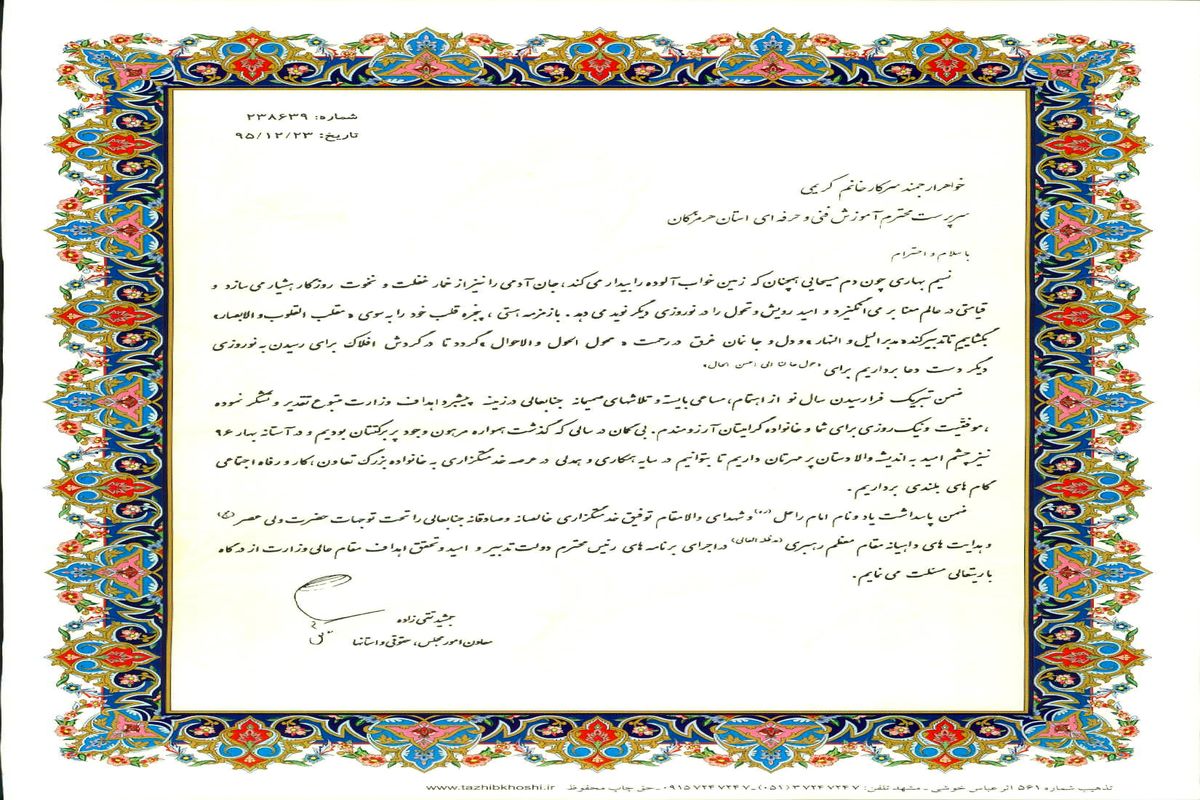 شماره: ۲۳۸۶۳۹
تاریخ: ۹۵/۱۲/۲۳
خواهر ارجمند سرکار خانم کریمی
سرپرست محترم آموزش فنی و حرفه ای استان هرمزگان
با سلام و احترام
نسیم بهاری چون دم مسیحایی همچنان که زمین خواب آلوده را بیدار می کند، جان آدمی را نیز از خمار غفلت و نخوت روزگار هشیار می سازد و
قیامتی در عالم معنا بر می انگیزد و امید رویش و تحول را در نوروزی دیگر نوید می دهد. باز مزمه هستی، پنجره قلب خود را به سوی «مقلب القلوب و الابصار»
بگشاییم تا تدبیر کننده «مدبر اللیل و النهار» و دل و جانمان غرق در رحمت «محول الحول و الاحوال» گردد تا در گردش افلاک برای رسیدن به نوروزی
دیگر دست دعا برداریم برای «حول حالنا الی احسن الحال»
ضمن تبریک فرارسیدن سال نو از اهتمام، مساعی بایسته و تلاشهای صمیمانه جنابعالی در زمینه پیشبرد اهداف وزارت متبوع تقدیر و تشکر نموده
، موفقیت و نیک روزی برای شما و خانواده گرامیتان آرزومندم. بی گمان در سالی که گذشت همواره مرهون وجود پر برکتتان بودیم و در آستانه بهار ۹۶
نیز چشم امید به اندیشه والا و دستان پر مهرتان داریم تا بتوانیم در سایه همکاری و همدلی در عرصه خدمتگزاری به خانواده بزرگ تعاون، کار و رفاه اجتماعی
گام های بلندی برداریم.
ضمن پاسداشت یاد و نام امام راحل (ره) و شهدای والامقام توفیق خدمتگزاری خالصانه و صادقانه جنابعالی را تحت توجهات حضرت ولی عصر (عج)
و هدایت های داهیانه مقام معظم رهبری (مدظله العالی) در اجرای برنامه های رئیس محترم دولت تدبیر و امید و تحقق اهداف مقام عالی وزارت از درگاه
باریتعالی مسئلت می نمایم.
جمشید تقی زاده
معاون امور مجلس، حقوقی و استانها
تذهیب شماره ۵۶۱ اثر عباس خوشی - مشهد تلفن: ۳۷۲۴۷۲۴۷ (۰۵۱) - ۰۹۱۵۷۲۴۷۲۴۷ - حق چاپ محفوظ www.tazhibkhoshi.ir